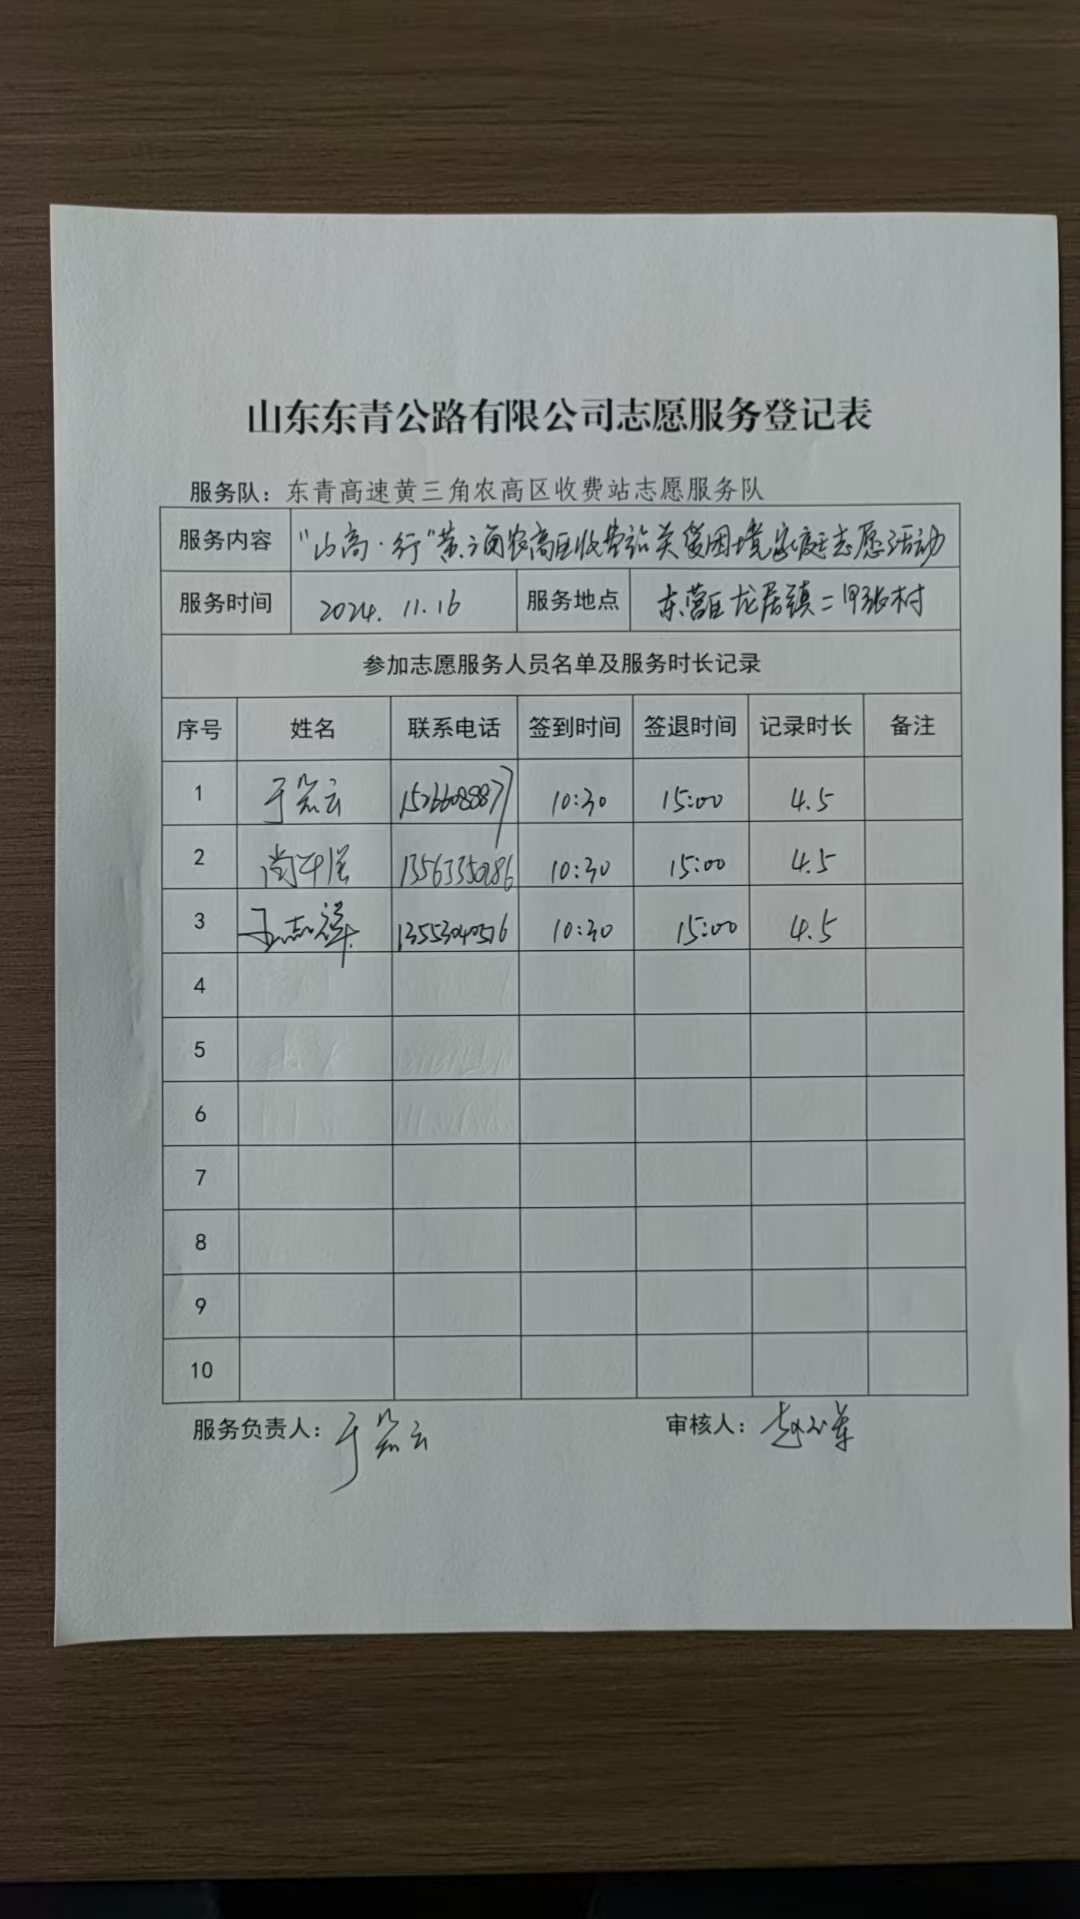 山东东青公路有限公司志愿服务登记表
服务队：东青高速黄三角农高区收费站志愿服务队
服务内容 "山高·行"黄三角农高区收费站关爱困境家庭志愿活动
服务时间 2024.11.16 服务地点 东营区龙居镇二甲张村
参加志愿服务人员名单及服务时长记录
序号 姓名 联系电话 签到时间 签退时间 记录时长 备注
1 于 云 10:30 15:00 4.5
2 尚 10:30 15:00 4.5
3 王志祥 13553040516 10:30 15:00 4.5
4
5
6
7
8
9
10
服务负责人：于 云 审核人：赵